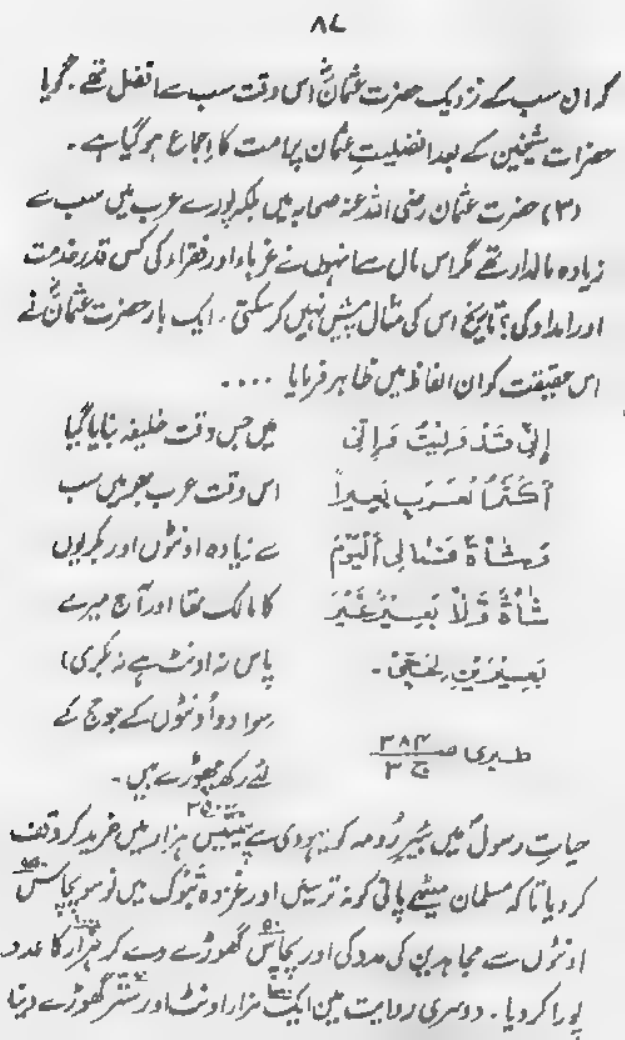 ۸۷
کہ ان سب کے نزدیک حضرت عثمانؓ اس وقت سب سے افضل تھے۔ گویا
حضرات شیخین کے بعد افضلیتِ عثمان پر امت کا اجماع ہو گیا ہے۔
(۳) حضرت عثمان رضی اللہ عنہ صحابہ میں بلکہ پورے عرب میں سب سے
زیادہ مالدار تھے مگر اس مال سے انہوں نے غرباء اور فقراء کی کس قدر خدمت
اور امداد کی؟ تاریخ اس کی مثال پیش نہیں کر سکتی۔ ایک بار حضرت عثمانؓ نے
اس حقیقت کو ان الفاظ میں ظاہر فرمایا ....
إِنِّیْ قَدْ وَلِیْتُ وَإِنِّیْ
أَکْثَرُ الْعَرَبِ بَعِیْراً
وَشَاةً فَمَا لِیَ الْیَوْمَ
شَاةٌ وَّلَا بَعِیْرٌ غَیْرَ
بَعِیْرَیْنِ لِحَجِّیْ۔
طبری ص ۳۸۴ ج ۳
میں جس وقت خلیفہ بنایا گیا
اس وقت عرب بھر میں سب
سے زیادہ اونٹوں اور بکریوں
کا مالک تھا اور آج میرے
پاس نہ اونٹ ہے نہ بکری)
سوا دو اُونٹوں کے جو حج کے
لئے رکھ چھوڑے ہیں۔
حیاتِ رسولؐ میں بئیرِ رُومہ کو یہودی سے پینتیس ۳۵۰۰۰ ہزار میں خرید کر وقف
کر دیا تاکہ مسلمان میٹھے پانی کو نہ ترسیں اور غزوہ تبوک میں نو سو پچاس ۹۵۰
اونٹوں سے مجاہدین کی مدد کی اور پچاس ۵۰ گھوڑے دے کر ہزار ۱۰۰۰ کا عدد
پورا کر دیا۔ دوسری روایت میں ایک ہزار ۱۰۰۰ اونٹ اور ستر ۷۰ گھوڑے دینا